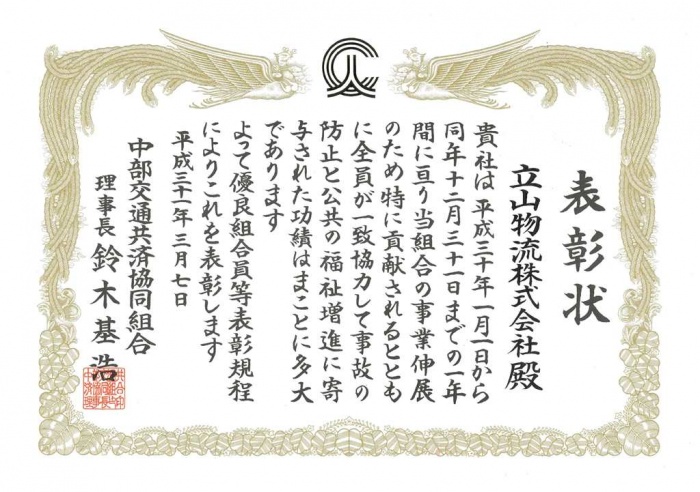 表彰状
立山物流株式会社殿
貴社は平成三十年一月一日から
同年十二月三十一日までの一年
間に亘り当組合の事業伸展
のため特に貢献されるととも
に全員が一致協力して事故の
防止と公共の福祉増進に寄
与された功績はまことに多大
であります
よって優良組合員等表彰規程
によりこれを表彰します
平成三十一年三月七日
中部交通共済協同組合
理事長 鈴木基浩